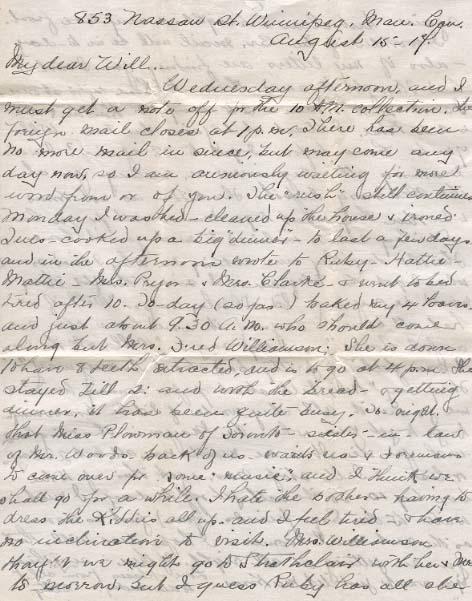 853 Nassau St. Winnipeg. Man. Can.
August 15-17.
My dear Will..
Wednesday afternoon, and I
must get a note off for the 10 P.M. collection. The
foreign mail closes at 1 p.m. There has been
no more mail in since, but may come any
day now, so I am anxiously waiting for more
word from or of you. The "rush" still continues
Monday I washed - cleaned up the house & ironed
Tues - cooked up a big "dinner" - to last a few days
and in the afternoon wrote to Ruby - Hattie -
Mattie - Mrs. Pryor - & Mrs. Clarke - & went to bed
tired after 10. To-day (so far) baked my 4 loaves
and just about 9.30 A.M. who should come
along but Mrs. Fred Williamson; She is down
to have 8 teeth extracted, and is to go at 4 p.m. She
stayed till 2: and with the bread - & getting
dinner, it has been quite busy. To-night,
that Miss Plowman of Toronto - sister-in-law
of Mrs. Woods back of us wants us &
to come over for some "music", and I think we
shall go for a while. I hate the bother - having to
dress the Kiddies all up. and I feel tired & have
no inclination to visit. Mrs. Williamson
we might go to Strathclair with her &
to-morrow, but I guess Ruby has all she